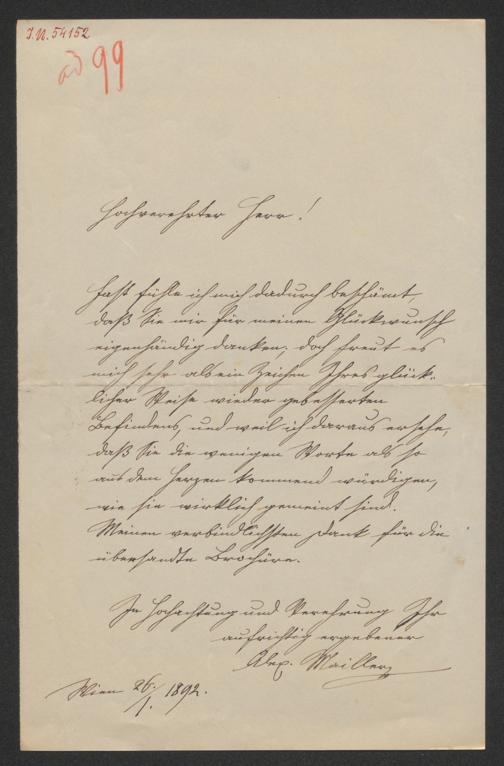 I.N. 54152
ad 99
Hochverehrter Herr!
Fast fühle ich mich dadurch beschämt,
daß Sie mir für meinen Glückwunsch
eigenhändig danken; doch freut es
mich sehr als ein Zeichen Ihres glück-
licher Weise wieder gebesserten
Befindens, und weil ich daraus ersehe,
daß Sie die wenigen Worte als so
aus dem Herzen kommend würdigen,
wie sie wirklich gemeint sind.
Meinen verbindlichsten Dank für die
übersandte Brochüre.
In Hochachtung und Verehrung Ihr
aufrichtig ergebener
Alex. Mailler
Wien 26/1. 1892.